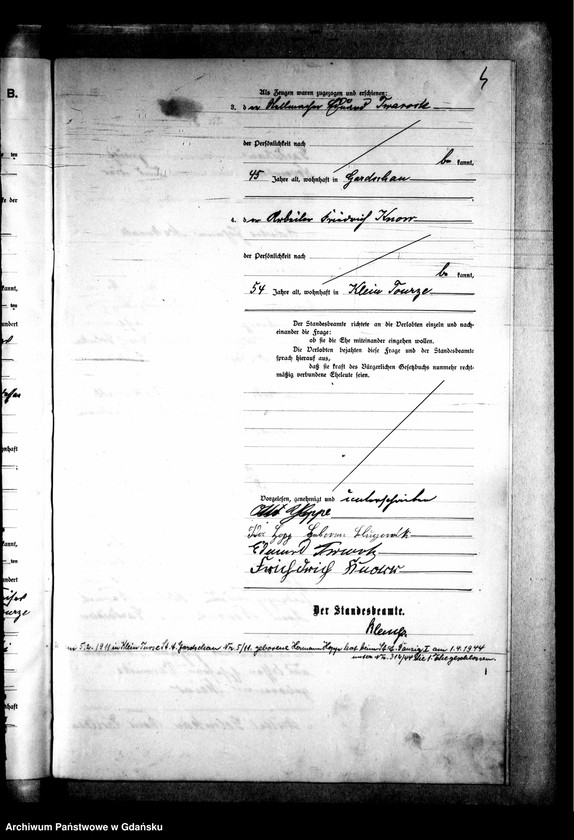 B.
4
Als Zeugen waren zugezogen und erschienen:
3. der Stellmacher Eduard Twarock
der Persönlichkeit nach
be kannt,
45 Jahre alt, wohnhaft in Gardschau
4. der Arbeiter Friedrich Knorr
der Persönlichkeit nach
be kannt,
54 Jahre alt, wohnhaft in Klein Tourze
Der Standesbeamte richtete an die Verlobten einzeln und nach-
einander die Frage:
ob sie die Ehe miteinander eingehen wollen.
Die Verlobten bejahten diese Frage und der Standesbeamte
sprach hierauf aus,
daß sie kraft des Bürgerlichen Gesetzbuchs nunmehr recht-
mäßig verbundene Eheleute seien.
Vorgelesen, genehmigt und unterschrieben
Otto Hoppe
Hoppe geborene
Eduard
Friedrich Knorr
Der Standesbeamte.
5.2.1911 in Klein Turze St. A. Gardschau Nr. 5/11. geborene Hermann Hoppe hat beim St. A. Danzig I am 1.4.1944
unter Nr. 314/44 die 1. Ehe geschlossen.
Archiwum Państwowe w Gdańsku